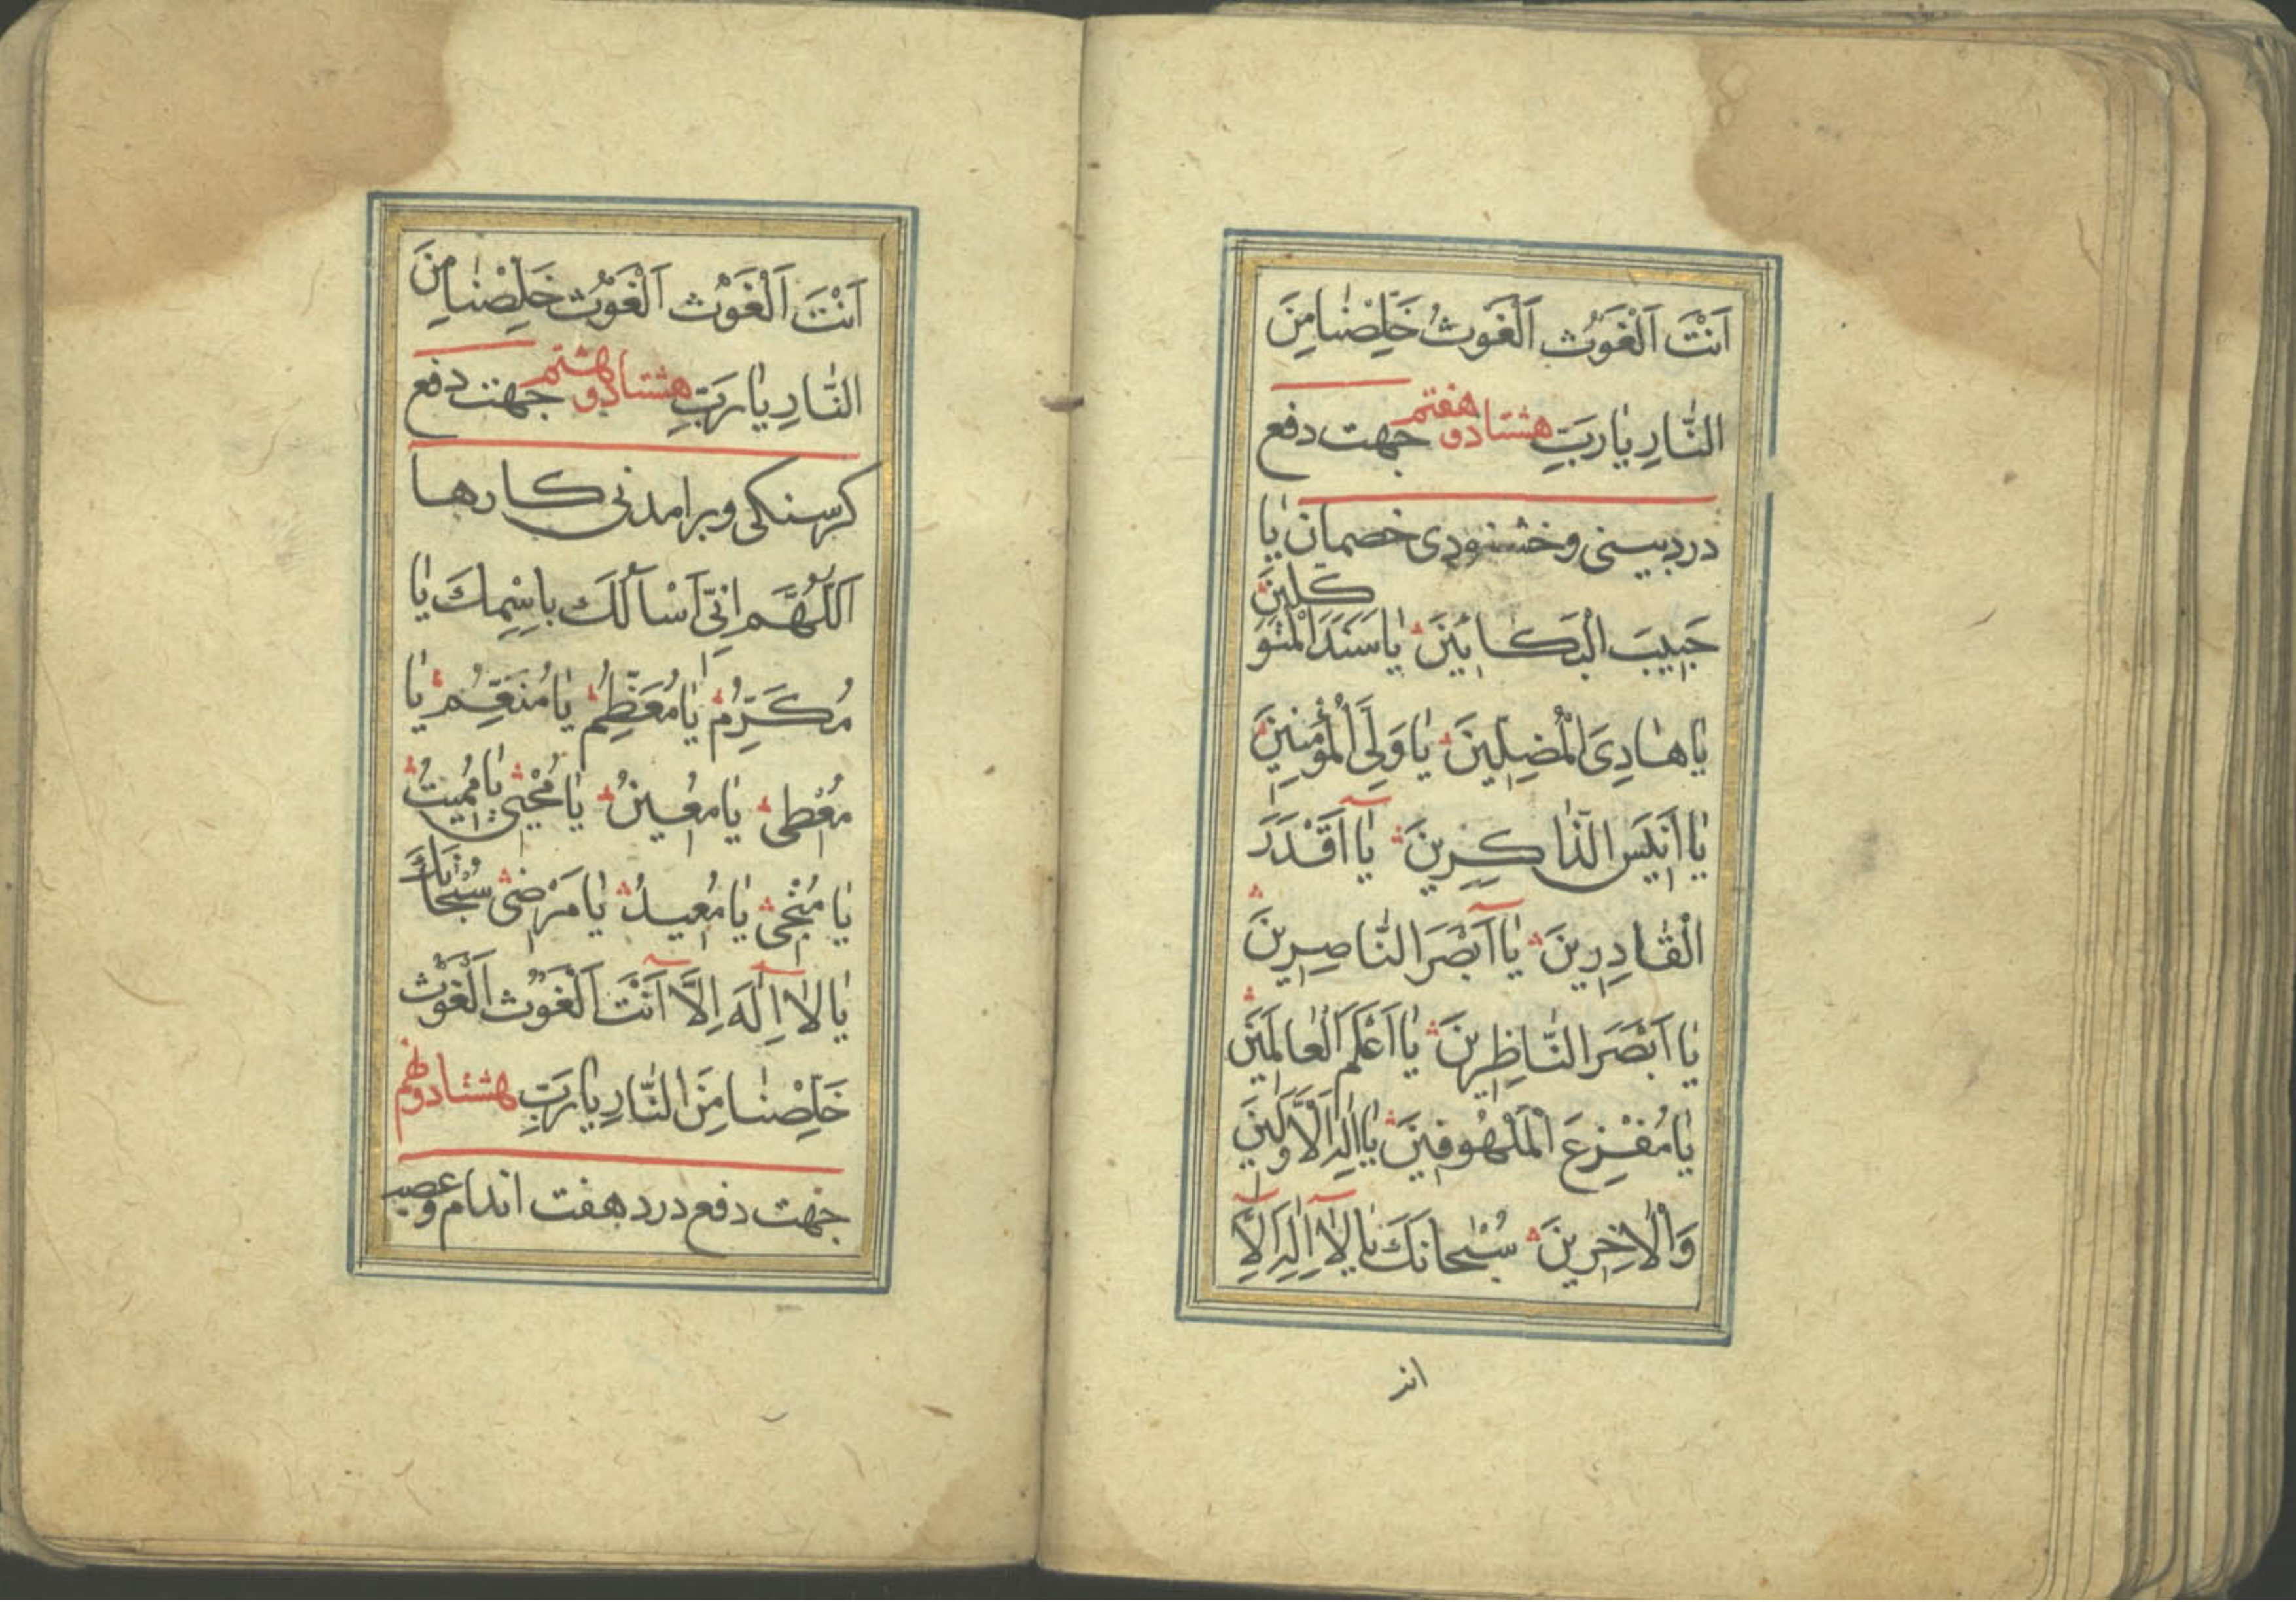 اَنْتَ اَلْغَوْث اَلْغَوثُ خَلِّصْنٰا مِنَ
النّٰارِ يٰا رَبِّ هشتاد و هفتم جهت دفع
درد بينى و خشنودى خصمان يٰا
حَبِيبَ الْبَكائينَ يٰا سَنَدَ الْمُتَوَكلينَ
يٰا هٰادِىَ الْمُضِلّينَ يٰا وَلِىَّ الْمُؤْمِنينَ
يٰا اَنيسَ الذّٰاكِرينَ يٰا اَقْدَرَ
الْقٰادِرينَ يٰا اَبْصَرَ النّاصِرينَ
يٰا اَبْصَرَ النّٰاظِرينَ يٰا اَعْلَمَ الْعٰالِمَينَ
يٰا مُفْزِعَ الْمَلْهُوفينَ يٰا اِلٰهَ الْاَوَّلينَ
وَالْاٰخِرينَ سُبْحانَكَ يٰا لٰا اِلٰهَ اِلّا
انت
اَنْتَ اَلْغَوْث اَلْغَوْث خَلِّصْنٰا مِنَ
النّٰارِ يٰا رَبِّ هشتاد و هشتم جهت دفع
كرسنكى و برامدنى كارها
اَللّٰهُمَّ اِنّى اَسْاَلُكَ بِاسْمِكَ يٰا
مُكَرِّمُ يٰا مُعَظِّمُ يٰا مُنَعِّمُ يٰا
مُعْطى يٰا مُعينُ يٰا مُحْيى يٰا مُميتُ
يٰا مُنْجى يٰا مُعيدُ يٰا مَرْضى سُبْحانَكَ
يٰا لٰا اِلٰهَ اِلَّا اَنْتَ اَلْغَوْث اَلْغَوْث
خَلِّصْنٰا مِنَ النّٰارِ يٰا رَبِّ هشتاد و نهم
جهت دفع درد هفت اندام و